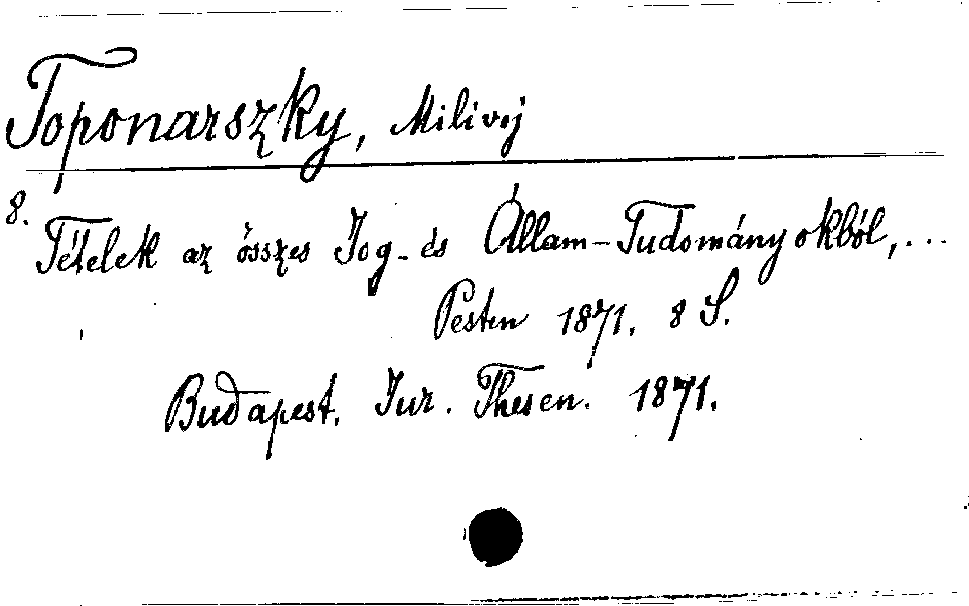 Toponarszky, Milivoj
8.
Tételek az összes Jog- és Állam-Tudományokból, ...
Pesten 1871. 8 S.
Budapest. Jur. Thesen. 1871.